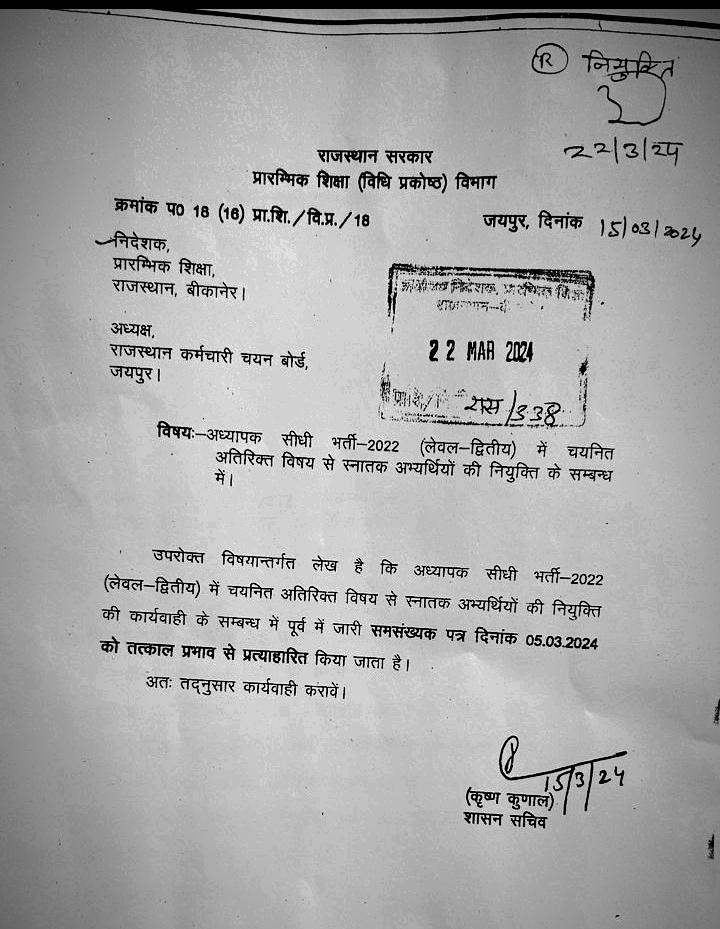 R नियुक्ति
22/3/24
राजस्थान सरकार
प्रारम्भिक शिक्षा (विधि प्रकोष्ठ) विभाग
क्रमांक प0 18 (16) प्रा.शि./वि.प्र./18 जयपुर, दिनांक 15/03/2024
निदेशक,
प्रारम्भिक शिक्षा,
राजस्थान, बीकानेर।
निदेशक, प्रारम्भिक शिक्षा
22 MAR 2024
338
अध्यक्ष,
राजस्थान कर्मचारी चयन बोर्ड,
जयपुर।
विषयः–अध्यापक सीधी भर्ती–2022 (लेवल–द्वितीय) में चयनित
अतिरिक्त विषय से स्नातक अभ्यर्थियों की नियुक्ति के सम्बन्ध
में।
उपरोक्त विषयान्तर्गत लेख है कि अध्यापक सीधी भर्ती–2022
(लेवल–द्वितीय) में चयनित अतिरिक्त विषय से स्नातक अभ्यर्थियों की नियुक्ति
की कार्यवाही के सम्बन्ध में पूर्व में जारी समसंख्यक पत्र दिनांक 05.03.2024
को तत्काल प्रभाव से प्रत्याहारित किया जाता है।
अतः तद्नुसार कार्यवाही करावें।
15/3/24
(कृष्ण कुणाल)
शासन सचिव